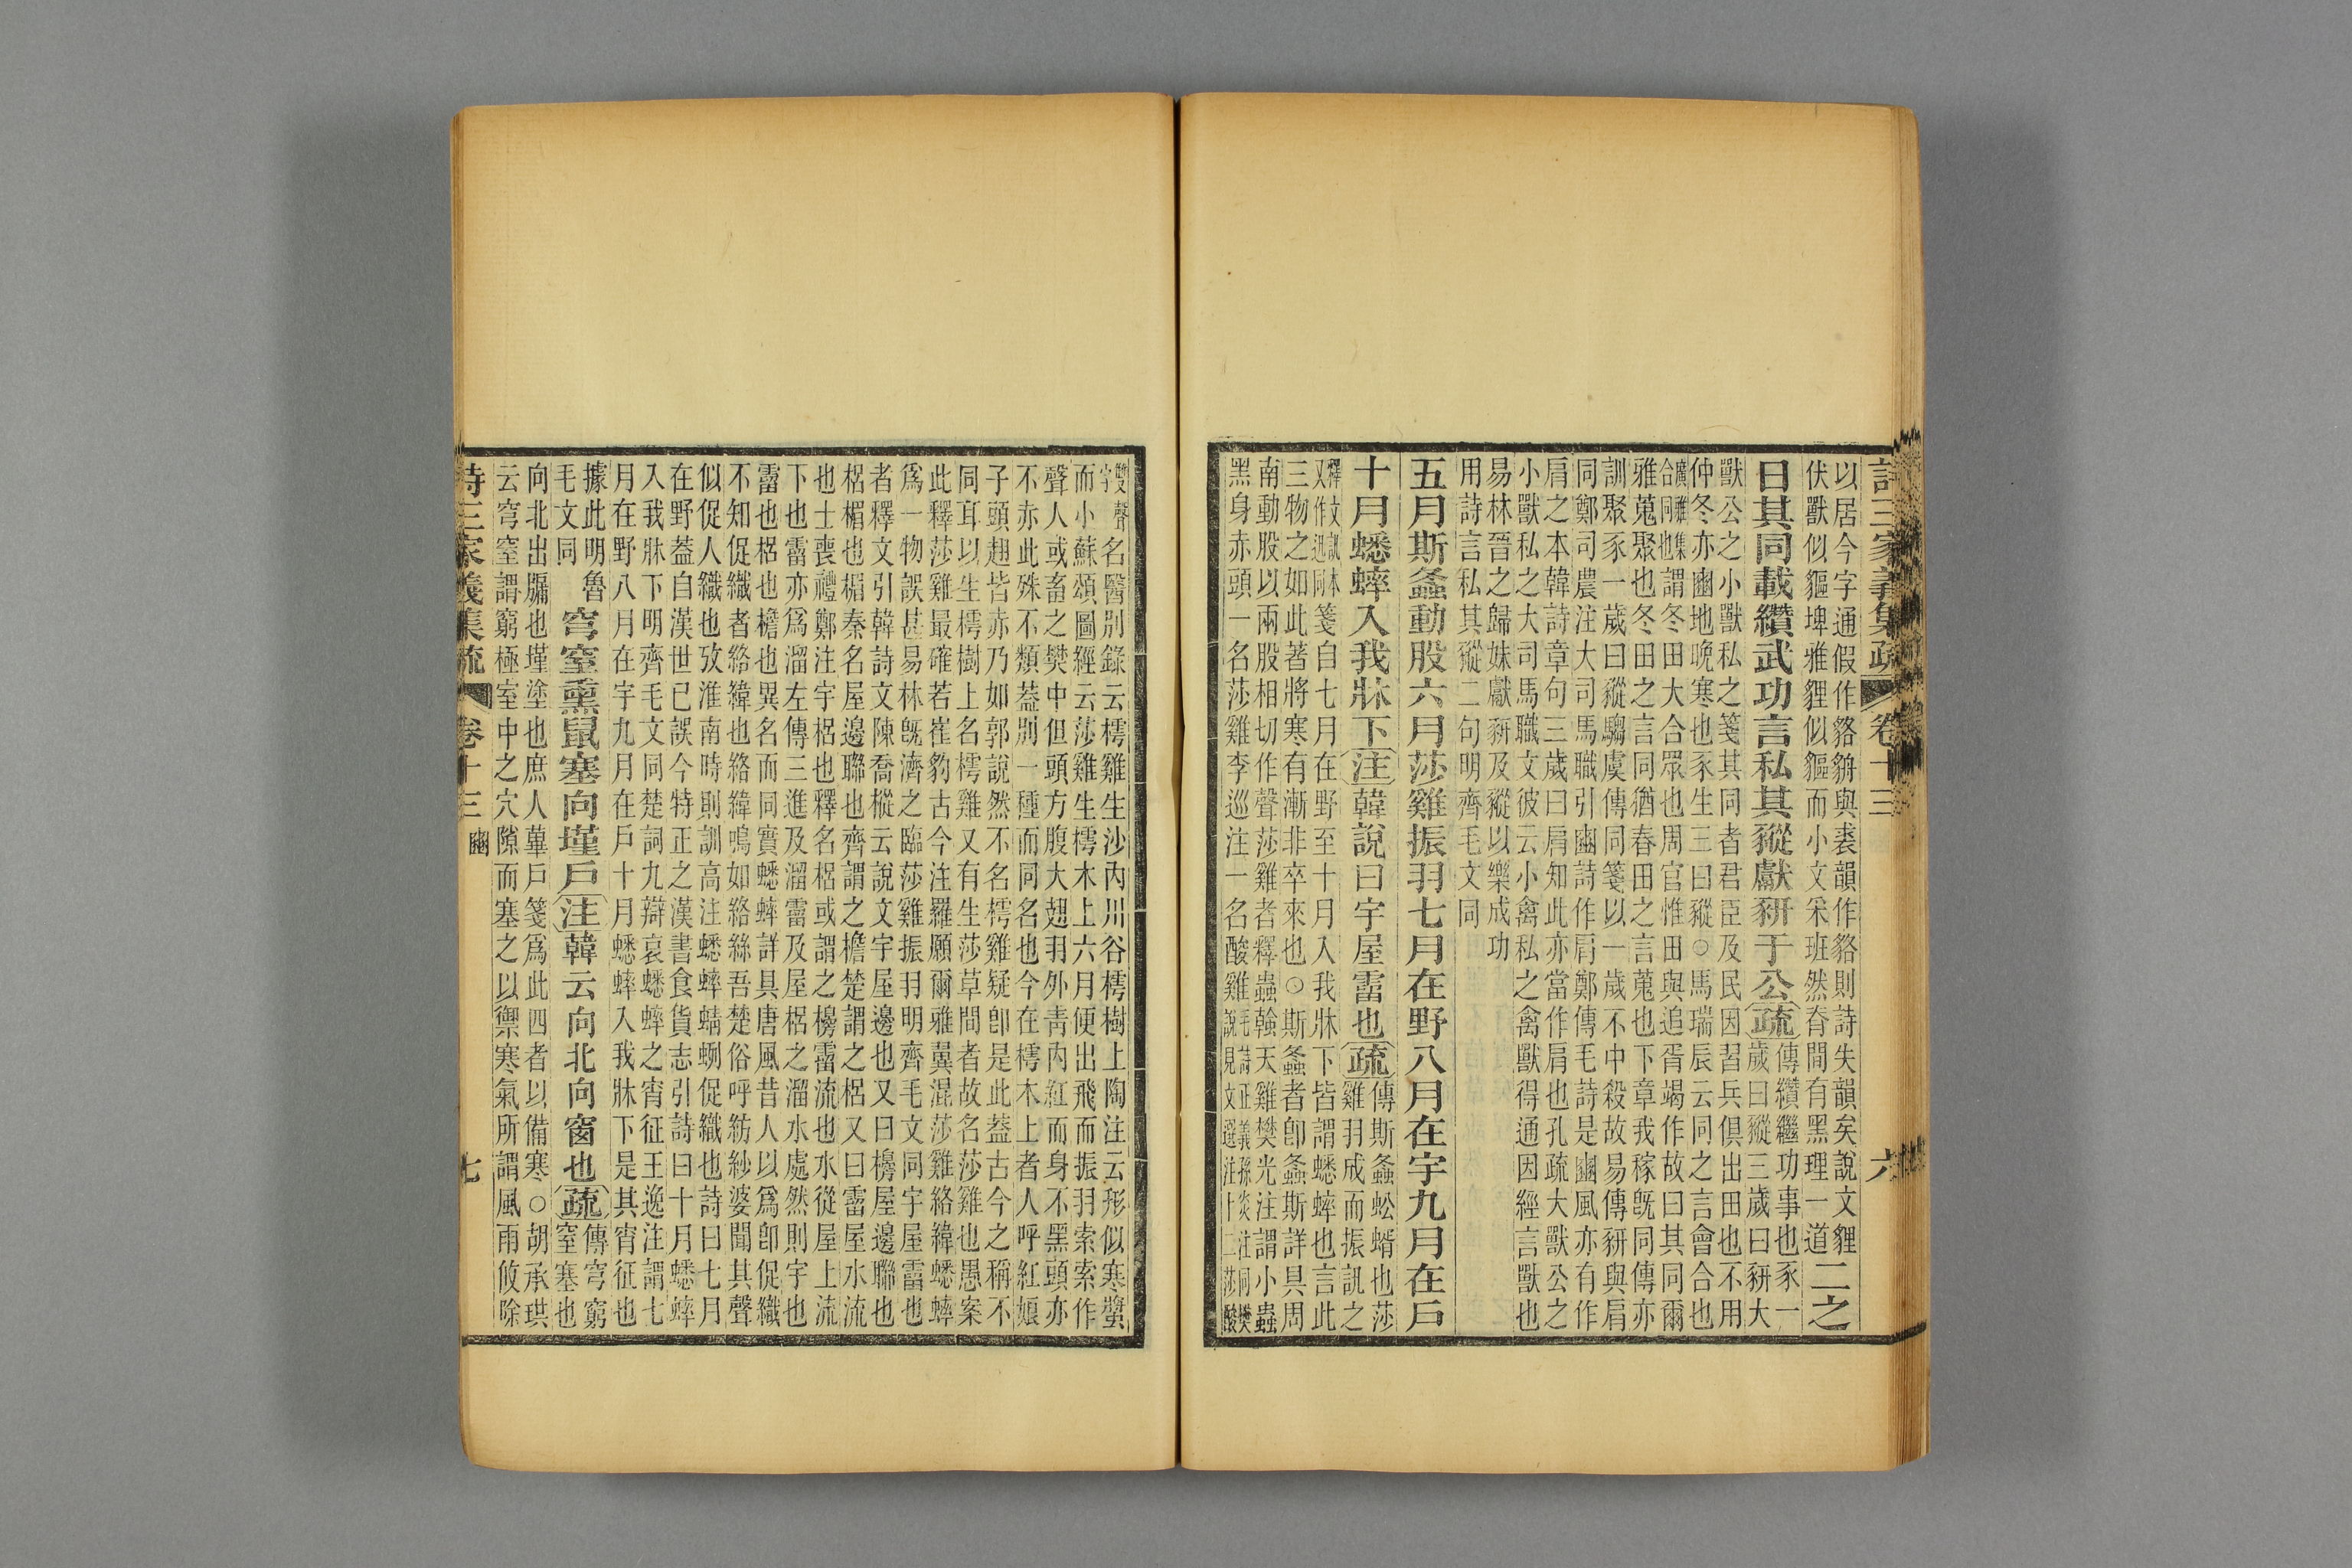 詩三家義集疏 卷十三 六
以居今字通假作貉貈與裘韻作貉則詩失韻矣說文貍
伏獸似貙埤雅貍似貙而小文采班然脊間有黑理一道
二之
日其同載纘武功言私其豵獻豜于公疏
傳纘繼功事也豕一
歲曰豵三歲曰豜大
獸公之小獸私之箋其同者君臣及民因習兵俱出田也不用
仲冬亦豳地晚寒也豕生三曰豵○馬瑞辰云同之言會合也
廣雅集
合同也
謂冬田大合眾也周官惟田與追胥竭作故曰其同爾
雅蒐聚也冬田之言同猶春田之言蒐也下章我稼既同傳亦
訓聚豕一歲曰豵騶虞傳同箋以一歲不中殺故易傳豜與肩
同鄭司農注大司馬職引豳詩作肩鄭傳毛詩是豳風亦有作
肩之本韓詩章句三歲曰肩知此亦當作肩也孔疏大獸公之
小獸私之大司馬職文彼云小禽私之禽獸得通因經言獸也
易林晉之歸妹獻豜及豵以樂成功
用詩言私其豵二句明齊毛文同
五月斯螽動股六月莎雞振羽七月在野八月在宇九月在戶
十月蟋蟀入我牀下注韓說曰宇屋霤也疏
傳斯螽蚣蝑也莎
雞羽成而振訊之
釋文訊本
又作迅同
箋自七月在野至十月入我牀下皆謂蟋蟀也言此
三物之如此著將寒有漸非卒來也○斯螽者卽螽斯詳具周
南動股以兩股相切作聲莎雞者釋蟲螒天雞樊光注謂小蟲
黑身赤頭一名莎雞李巡注一名酸雞
毛詩正義孫炎注同樊
說見文選注十二莎酸
雙聲
字
名醫別錄云樗雞生沙內川谷樗樹上陶注云形似寒螿
而小蘇頌圖經云莎雞生樗木上六月便出飛而振羽索索作
聲人或畜之樊中但頭方腹大翅羽外青內紅而身不黑頭亦
不赤此殊不類蓋別一種而同名也今在樗木上者人呼紅娘
子頭翅皆赤乃如郭說然不名樗雞疑卽是此蓋古今之稱不
同耳以生樗樹上名樗雞又有生莎草間者故名莎雞也愚案
此釋莎雞最確若崔豹古今注羅願爾雅翼混莎雞絡緯蟋蟀
爲一物誤甚易林既濟之臨莎雞振羽明齊毛文同宇屋霤也
者釋文引韓詩文陳喬樅云說文宇屋邊也又曰櫋屋邊聯也
梠楣也楣秦名屋邊聯也齊謂之檐楚謂之梠又曰霤屋水流
也士喪禮鄭注宇梠也釋名梠或謂之櫋霤流也水從屋上流
下也霤亦爲溜左傳三進及溜霤及屋梠之溜水處然則宇也
霤也梠也檐也異名而同實蟋蟀詳具唐風昔人以爲卽促織
不知促織者絡緯也絡緯鳴如絡絲吾楚俗呼紡紗婆聞其聲
似促人織也攷淮南時則訓高注蟋蟀蜻蛚促織也詩曰七月
在野蓋自漢世已誤今特正之漢書食貨志引詩曰十月蟋蟀
入我牀下明齊毛文同楚詞九辯哀蟋蟀之宵征王逸注謂七
月在野八月在宇九月在戶十月蟋蟀入我牀下是其宵征也
據此明魯
毛文同
穹窒熏鼠塞向墐戶注韓云向北向窗也疏
傳穹窮
窒塞也
向北出牖也墐塗也庶人蓽戶箋爲此四者以備寒○胡承珙
云穹窒謂窮極室中之穴隙而塞之以禦寒氣所謂風雨攸除
詩三家義集疏 卷十三 豳 七